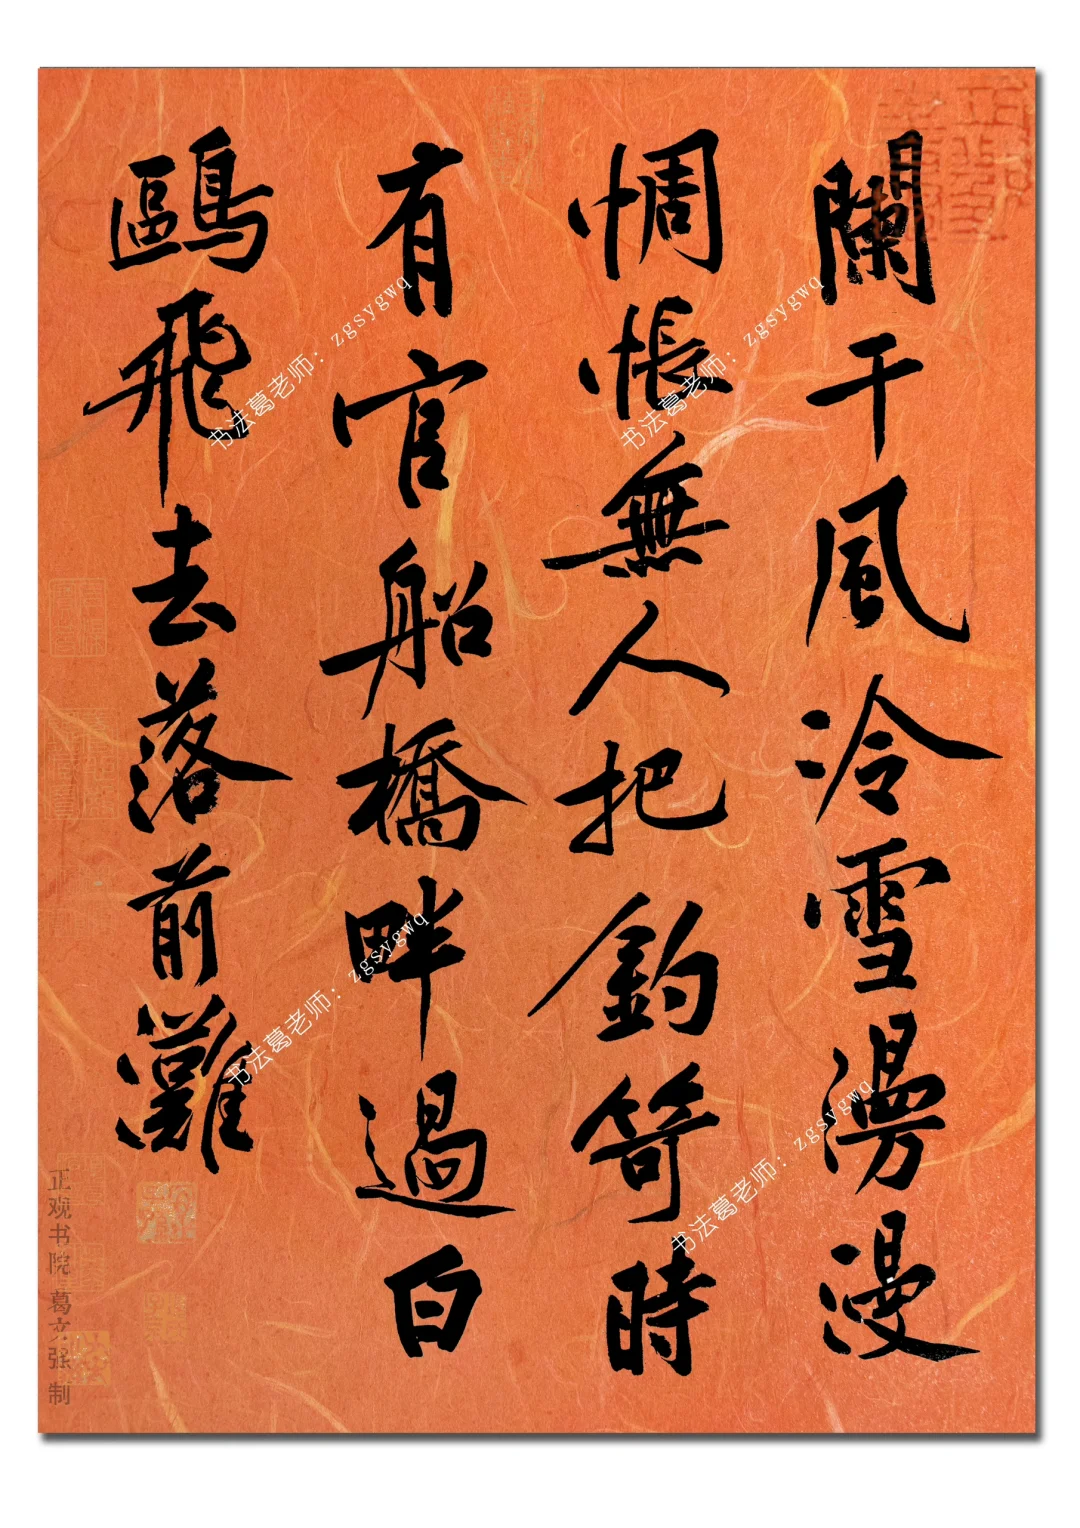 闌干風冷雪漫漫
惆悵無人把釣竿時
有官船橋畔過白
鷗飛去落前灘
正观书院 葛文强 制
书法葛老师：zgsygwq
书法葛老师：zgsygwq
书法葛老师：zgsygwq
书法葛老师：zgsygwq